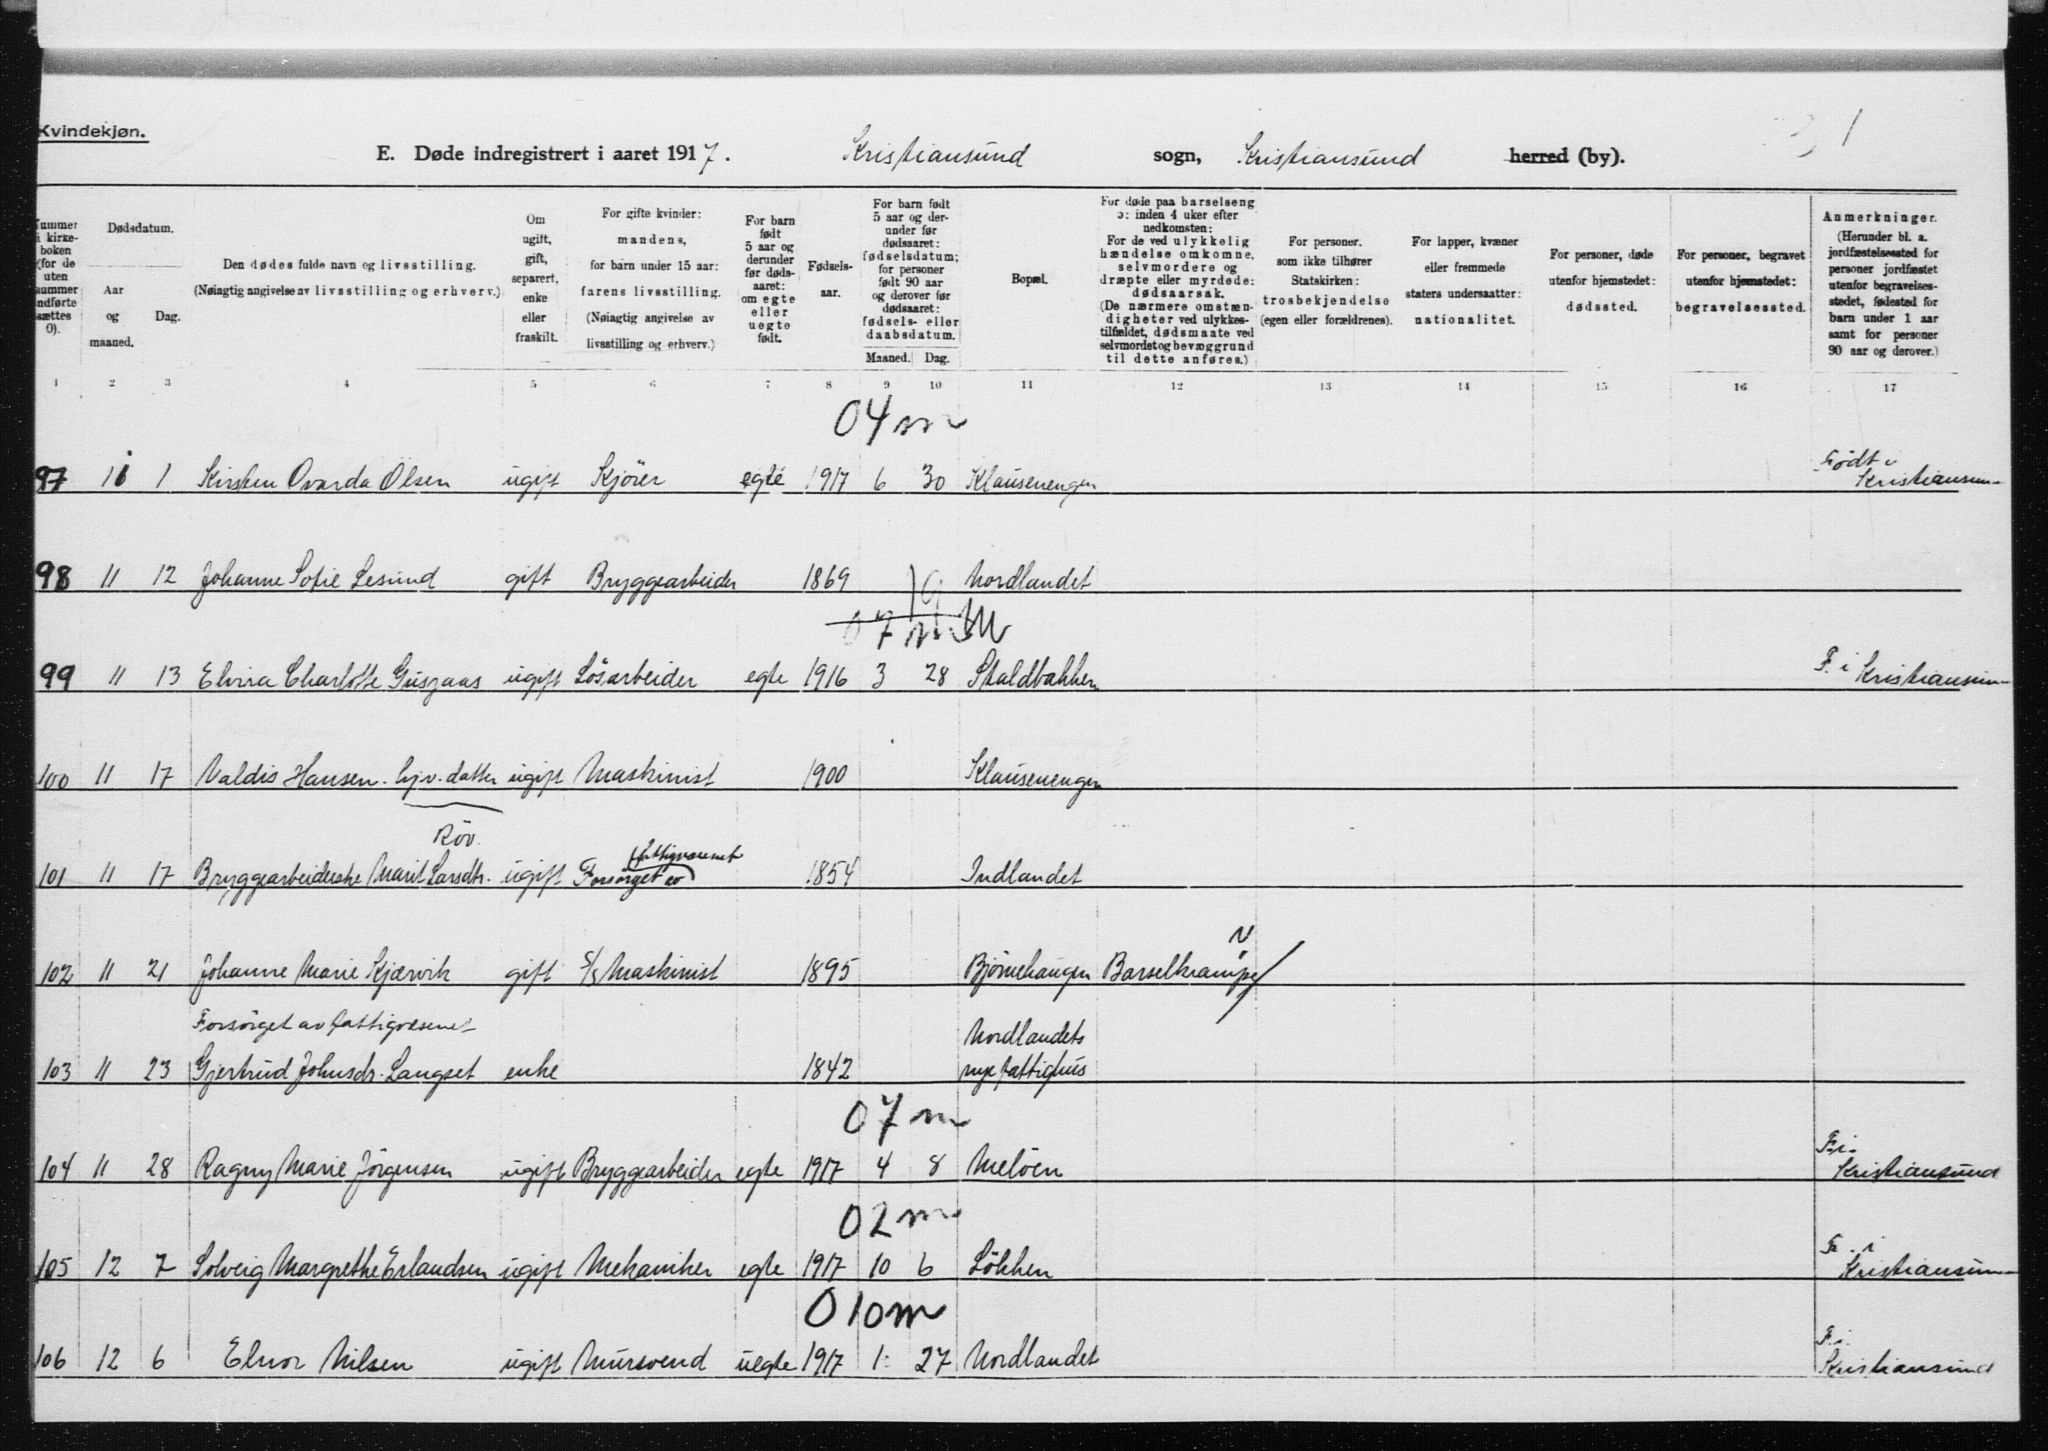 Kvindekjøn.
E. Døde indregistrert i aaret 1917. Kristiansund sogn, Kristiansund herred (by).
Nummer i kirkeboken (for de uten nummer indførte sættes 0).
Dødsdatum.
Aar og maaned.
Dag.
Den dødes fulde navn og livsstilling.
(Nøiagtig angivelse av livsstilling og erhverv.)
Om ugift, gift, separert, enke eller fraskilt.
For gifte kvinder: mandens, for barn under 15 aar: farens livsstilling.
(Nøiagtig angivelse av livsstilling og erhverv.)
For barn født 5 aar og derunder før dødsaaret: om egte eller uegte født.
Fødselsaar.
For barn født 5 aar og derunder før dødsaaret: fødselsdatum; for personer født 90 aar og derover før dødsaaret: fødsels- eller daabsdatum.
Maaned. Dag.
Bopæl.
For døde paa barselseng ɔ: inden 4 uker efter nedkomsten:
For de ved ulykkelig hændelse omkomne, selvmordere og dræpte eller myrdede: dødsaarsak.
(De nærmere omstændigheter ved ulykkestilfældet, dødsmaate ved selvmordet og bevæggrund til dette anføres.)
For personer, som ikke tilhører Statskirken: trosbekjendelse (egen eller forældrenes).
For lapper, kvæner eller fremmede staters undersaatter: nationalitet.
For personer, døde utenfor hjemstedet: dødssted.
For personer, begravet utenfor hjemstedet: begravelsessted.
Anmerkninger.
(Herunder bl. a. jordfæstelsessted for personer jordfæstet utenfor begravelsesstedet, fødested for barn under 1 aar samt for personer 90 aar og derover.)
1 2 3 4 5 6 7 8 9 10 11 12 13 14 15 16 17
04 m
97 11 1 Kirsten Ovarda Olsen ugift Kjører egte 1917 6 30 Klausenengen Født i Kristiansun
98 11 12 Johanne Sofie Lesund gift Bryggearbeider 1869 Nordlandet
07 m
99 11 13 Elvira Charlotte Gusgaas ugift Løsarbeider egte 1916 3 28 Skaldbakken F. i Kristiansun
100 11 17 Valdis Hansen. hjv. datter ugift Maskinist 1900 Klausenengen
Röv.
fattigvæsenet
101 11 17 Bryggearbeiderske Marit Larsdtr. ugift Forsørget av 1854 Indlandet
102 11 21 Johanne Marie Kjærvik gift S/S Maskinist 1895 Bjørnehaugen Barselkrampe
Forsørget av fattigvæsenet Nordlandets
103 11 23 Gjertrud Johnsdr. Langset enke 1842 nye fattighus
07 m
104 11 28 Ragny Marie Jörgensen ugift Bryggearbeider egte 1917 4 8 Meløen F. i. Kristiansund
02 m
105 12 7 Solveig Margrethe Erlandsen ugift Mekaniker egte 1917 10 6 Løkken F. i Kristiansun
010 m
106 12 6 Elnor Nilsen ugift Mursvend uegte 1917 1 27 Nordlandet F. i. Kristiansund